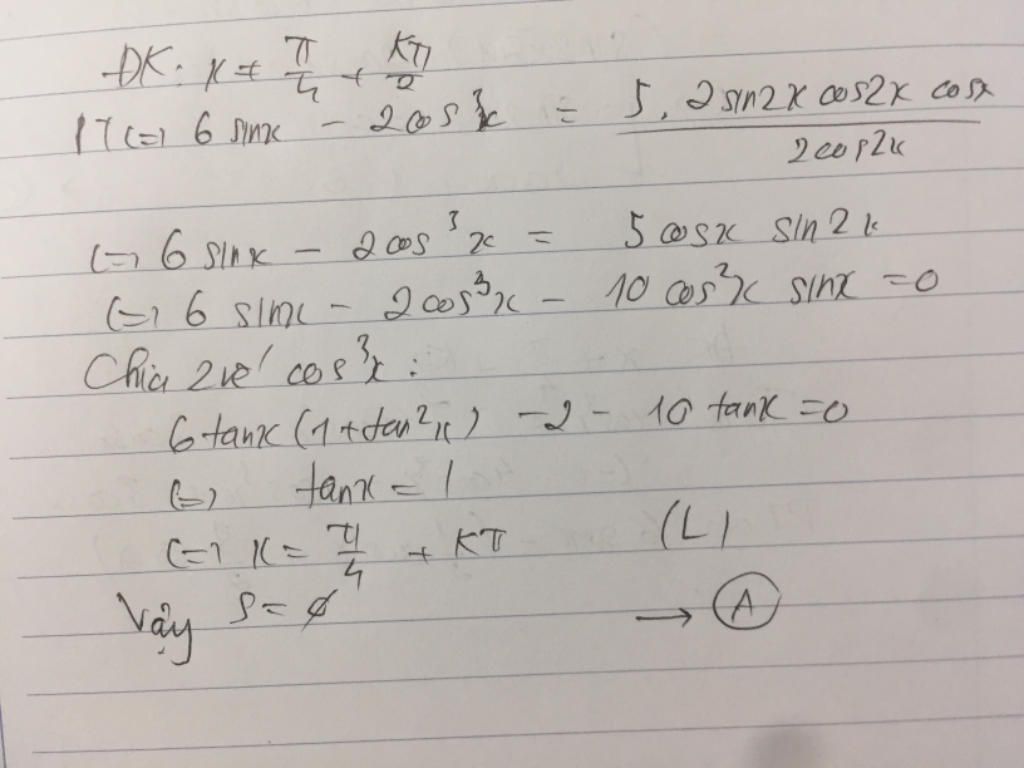 ĐK: x ≠ π/4 + kπ/2
PT (=) 6 sinx - 2cos³x = 5. 2sin2x cos2x cosx / 2cos2x
(=) 6 sinx - 2cos³x = 5 cosx sin2x
(=) 6 sinx - 2cos³x - 10 cos²x sinx = 0
Chia 2 vế cos³x:
6tanx(1+tan²x) - 2 - 10 tanx = 0
(=) tanx = 1
(=) x = π/4 + kπ (L)
Vậy S = ∅ → A